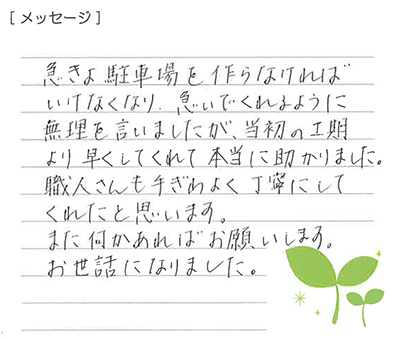 [メッセージ]
急きょ駐車場を作らなければ
いけなくなり、急いでくれるように
無理を言いましたが、当初の工期
より早くしてくれて本当に助かりました。
職人さんも手ぎわよく丁寧にして
くれたと思います。
また何かあればお願いします。
お世話になりました。